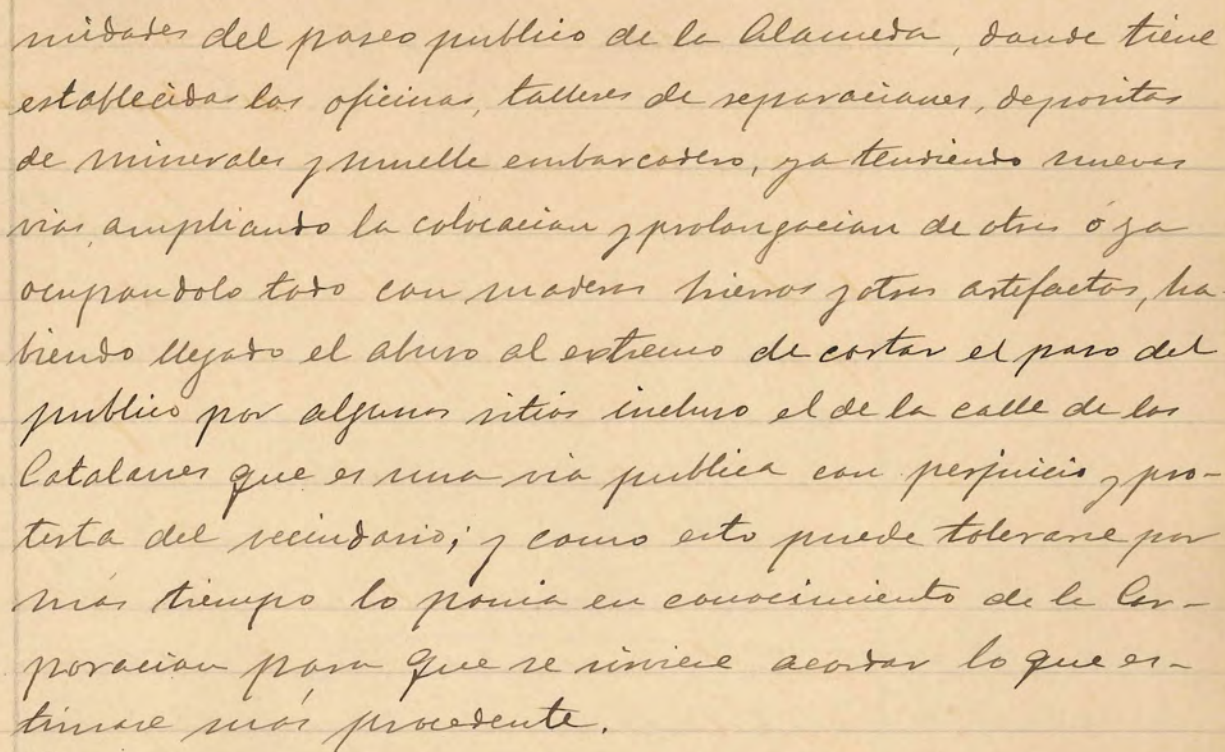 midades del paseo publico de la Alameda, donde tiene
establecidas las oficinas, talleres de reparaciones, depositos
de minerales y muelle embarcadero, ya tendiendo nuevas
vias, ampliando la colocacion y prolongacion de otras ó ya
ocupandolo todo con maderas hierros y otros artefactos, ha-
biendo llegado el abuso al extremo de cortar el paso del
publico por algunos sitios incluso el de la calle de los
Catalanes que es una via publica con perjuicio y pro-
testa del vecindario; y como esto puede tolerarse por
más tiempo lo ponia en conocimiento de la Cor-
poracion para que se sirviese acordar lo que es-
timase más procedente.